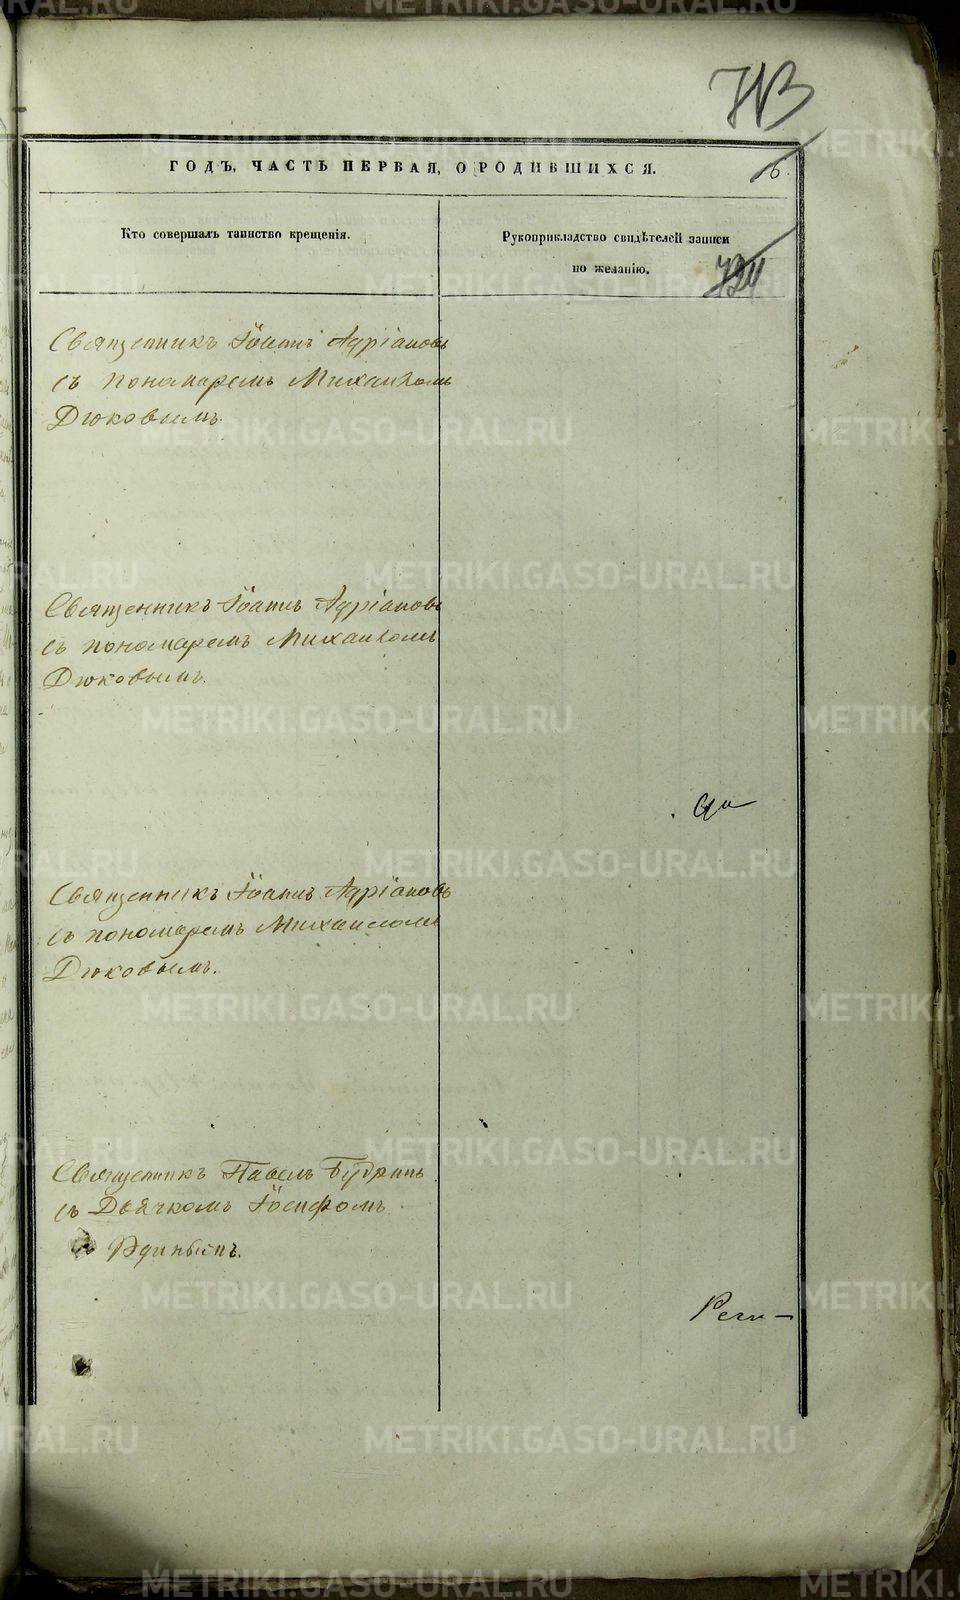 713
ГОДЪ, ЧАСТЬ ПЕРВАЯ, О РОДИВШИХСЯ.
6.
Кто совершалъ таинство крещенія.
Рукоприкладство свидѣтелей записи
по желанію.
724
Священникъ Іоаннъ Адріановъ
съ пономаремъ Михаиломъ
Дюковымъ.
Священникъ Іоаннъ Адріановъ
съ пономаремъ Михаиломъ
Дюковымъ.
Священникъ Іоаннъ Адріановъ
съ пономаремъ Михаиломъ
Дюковымъ.
Священникъ Павелъ Будринъ
съ Дьячкомъ Іосифомъ
METRIKI.GASO-URAL.RU